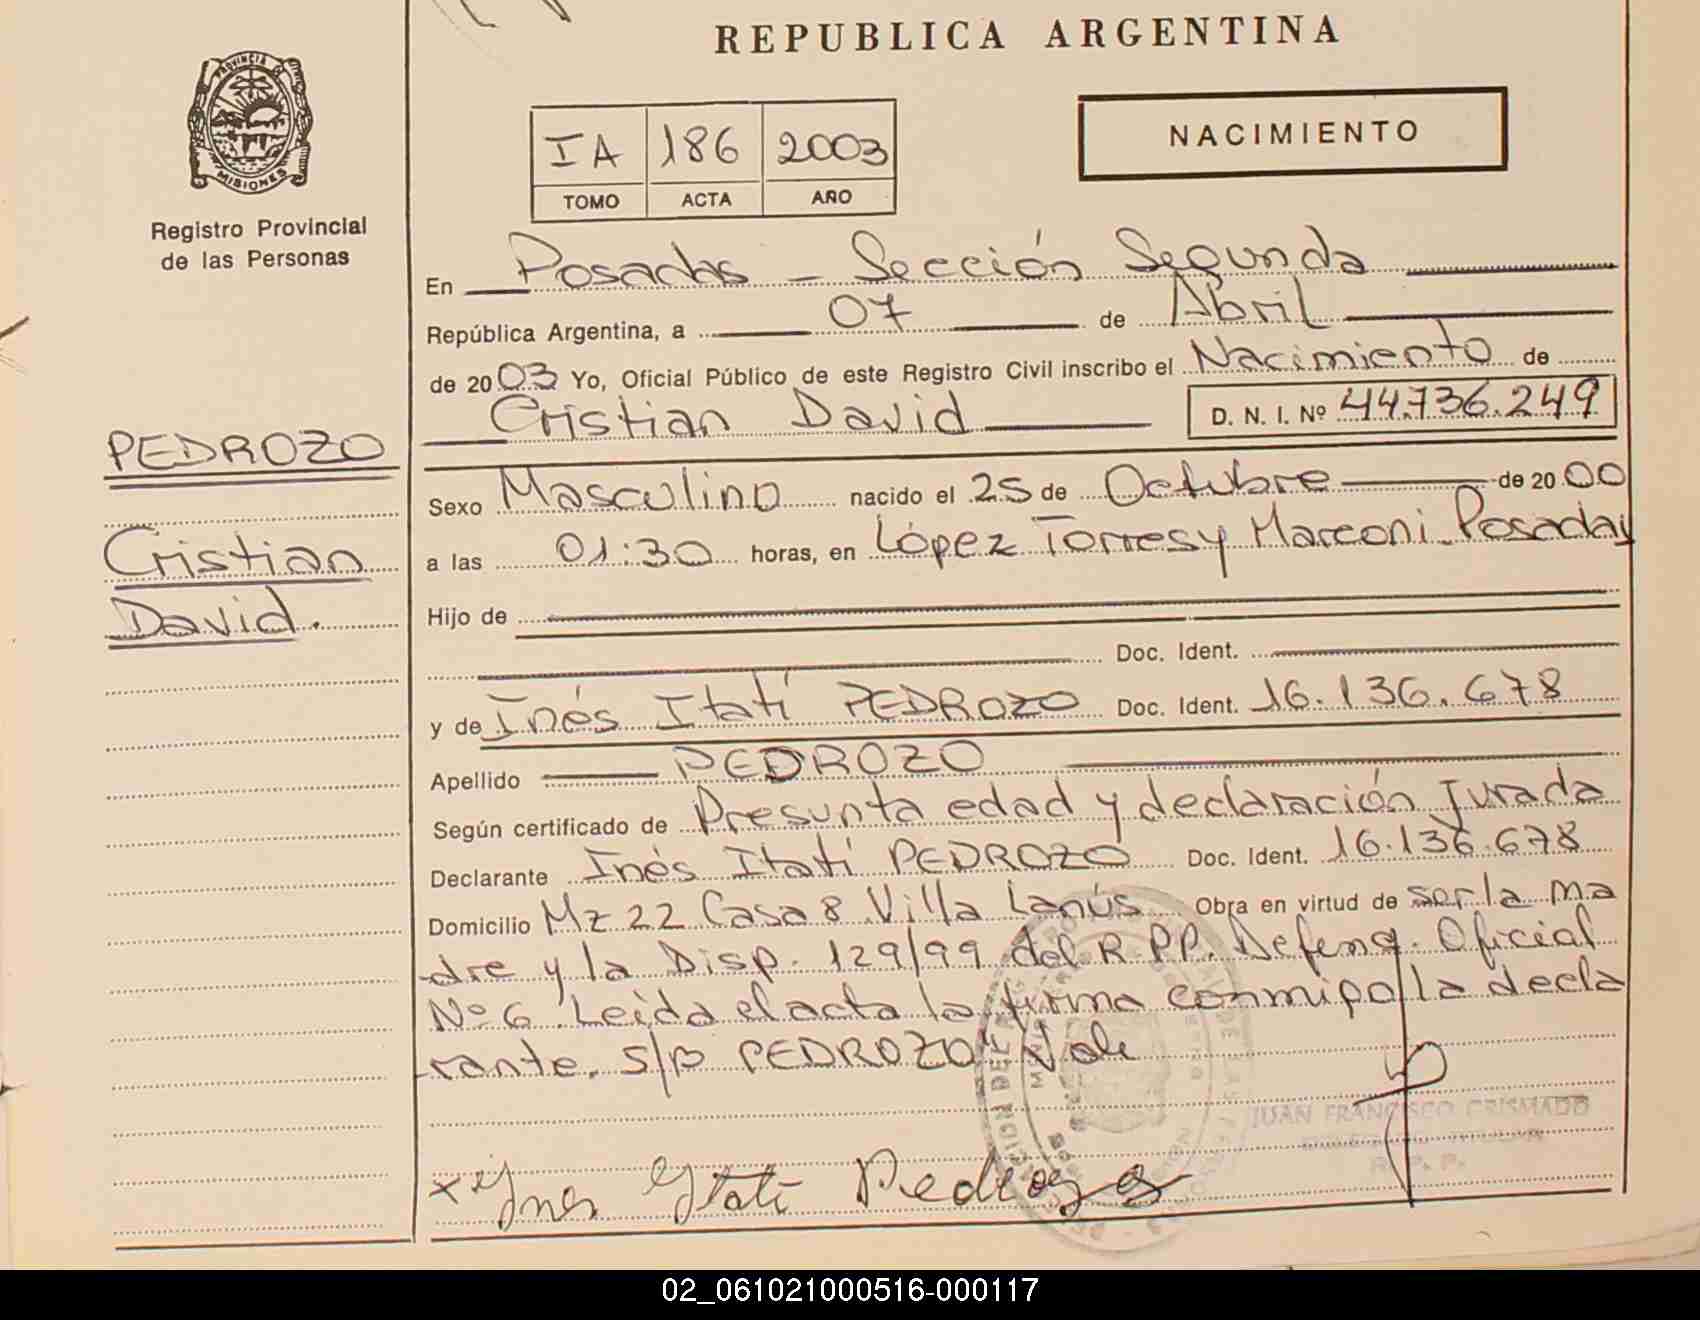 REPUBLICA ARGENTINA
PROVINCIA DE
MISIONES
Registro Provincial
de las Personas
IA 186 2003
TOMO ACTA AÑO
NACIMIENTO
PEDROZO
Cristian
David.
En Posadas - Sección Segunda
República Argentina, a 07 de Abril
de 2003 Yo, Oficial Público de este Registro Civil inscribo el Nacimiento de
Cristian David D. N. I. Nº 44.736.249
Sexo Masculino nacido el 25 de Octubre de 2000
a las 01:30 horas, en López Torres y Marconi - Posadas
Hijo de
Doc. Ident.
y de Inés Itatí PEDROZO Doc. Ident. 16.136.678
Apellido PEDROZO
Según certificado de Presunta edad y declaración Jurada
Declarante Inés Itatí PEDROZO Doc. Ident. 16.136.678
Domicilio Mz 22 Casa 8 Villa Lanús Obra en virtud de ser la ma
dre y la Disp. 129/99 del R.PP. Defens. Oficial
Nº 6. Leída el acta la firma conmigo la decla
rante. S/B PEDROZO" Vale
JUAN FRANCISCO CRISMADO
R. P. P.
x Ines Itati Pedrozo
02_061021000516-000117